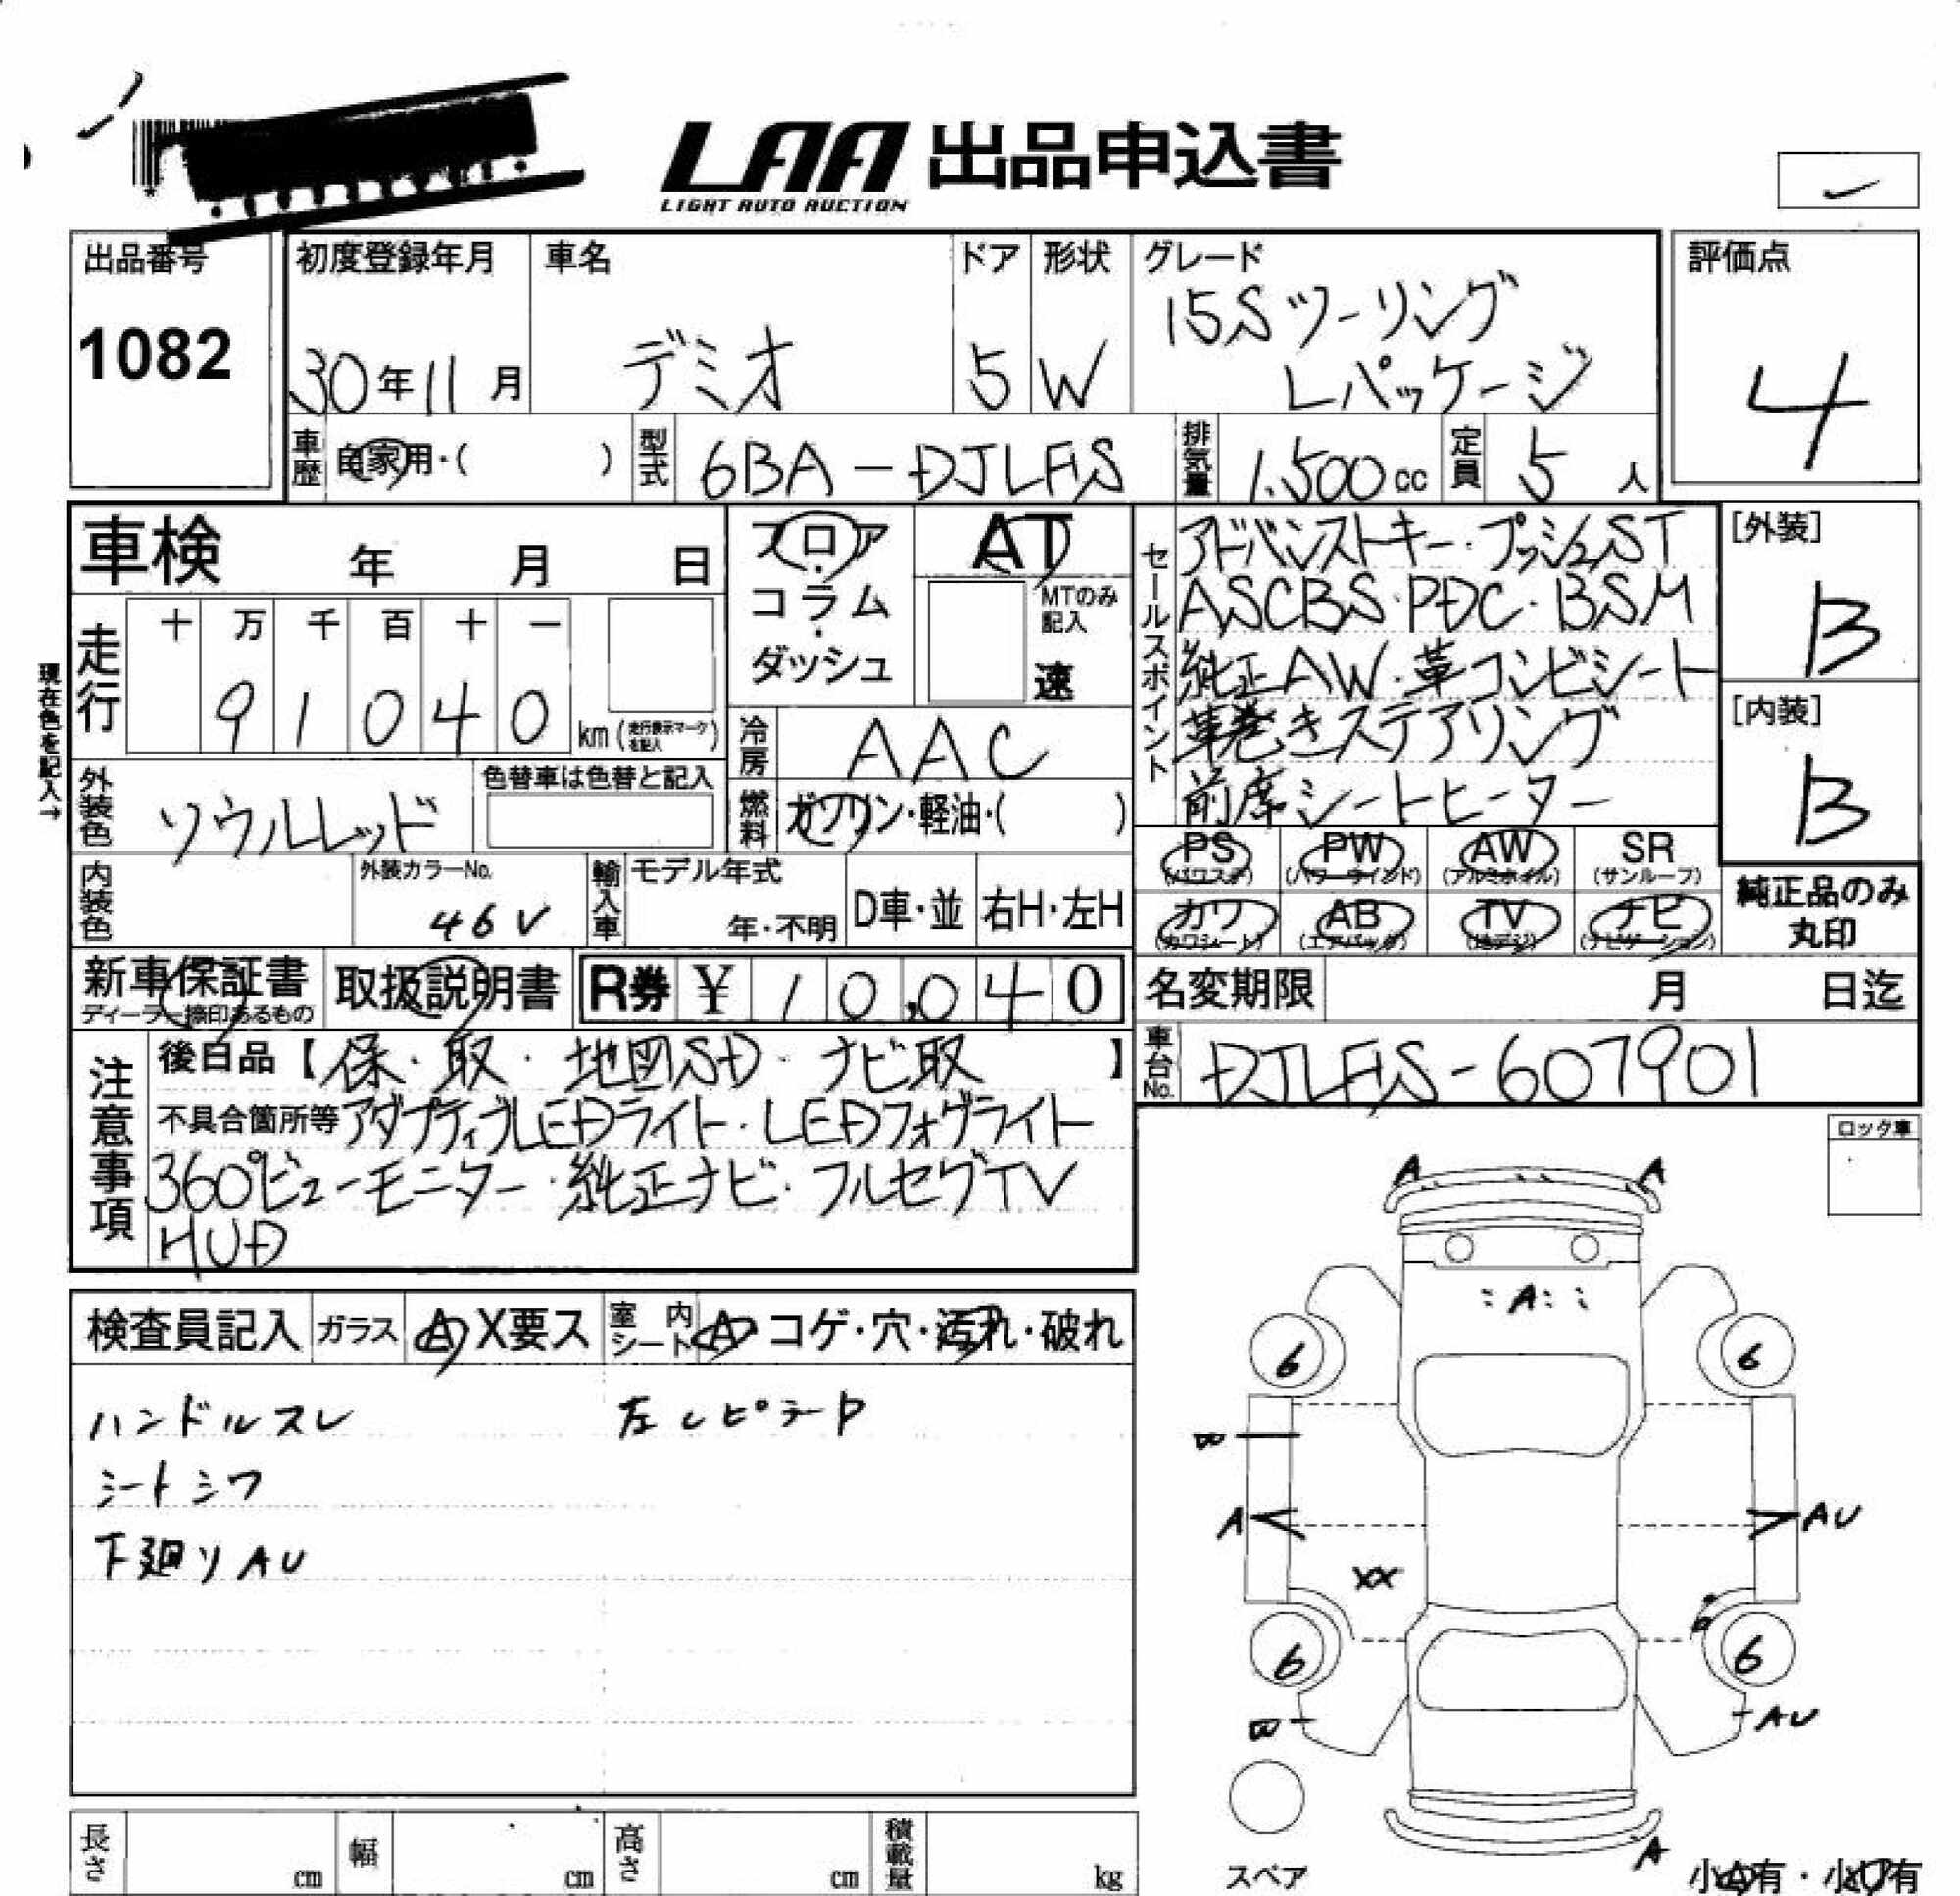 LAA 出品申込書
LIGHT AUTO AUCTION
出品番号
1082
初度登録年月
30年11月
車名
デミオ
ドア
5
形状
W
グレード
15Sツーリング
Lパッケージ
評価点
4
車歴
自家用・( )
型式
6BA-DJLFS
排気量
1.500cc
定員
5人
車検 年 月 日
フロア
コラム
ダッシュ
AT
MTのみ
記入
速
セールスポイント
アドバンストキー・プッシュST
ASCBS・PDC・BSM
純正AW・革コンビシート
革巻きステアリング
前席シートヒーター
[外装]
B
[内装]
B
現在色を記入→
走行
十 万 千 百 十 一
9 1 0 4 0
km(走行表示マークを記入)
冷房
AAC
外装色
ソウルレッド
色替車は色替と記入
燃料
ガソリン・軽油・( )
内装色
外装カラーNo.
46V
輸入車
モデル年式
年・不明
D車・並
右H・左H
PS
(パワステ)
PW
(パワーウインド)
AW
(アルミホイル)
SR
(サンルーフ)
カワ
(カワシート)
AB
(エアバック)
TV
(地デジ)
ナビ
(ナビゲーション)
純正品のみ
丸印
新車保証書
ディーラー捺印あるもの
取扱説明書
R券 ¥ 10,040
名変期限 月 日迄
車台No.
DJLFS-607901
注意事項
後日品【保・取・地図SD・ナビ取】
不具合箇所等アダプティブLEDライト・LEDフォグライト
360°ビューモニター・純正ナビ・フルセグTV
HUD
ロッタ車
検査員記入
ガラス
A X要ス
室内シート
A・コゲ・穴・汚れ・破れ
ハンドルスレ
シートシワ
下廻りAU
A A
A
6 6
A AU
XX
6 6
AU
A
スペア
長さ cm
幅 cm
高さ cm
積載量 kg